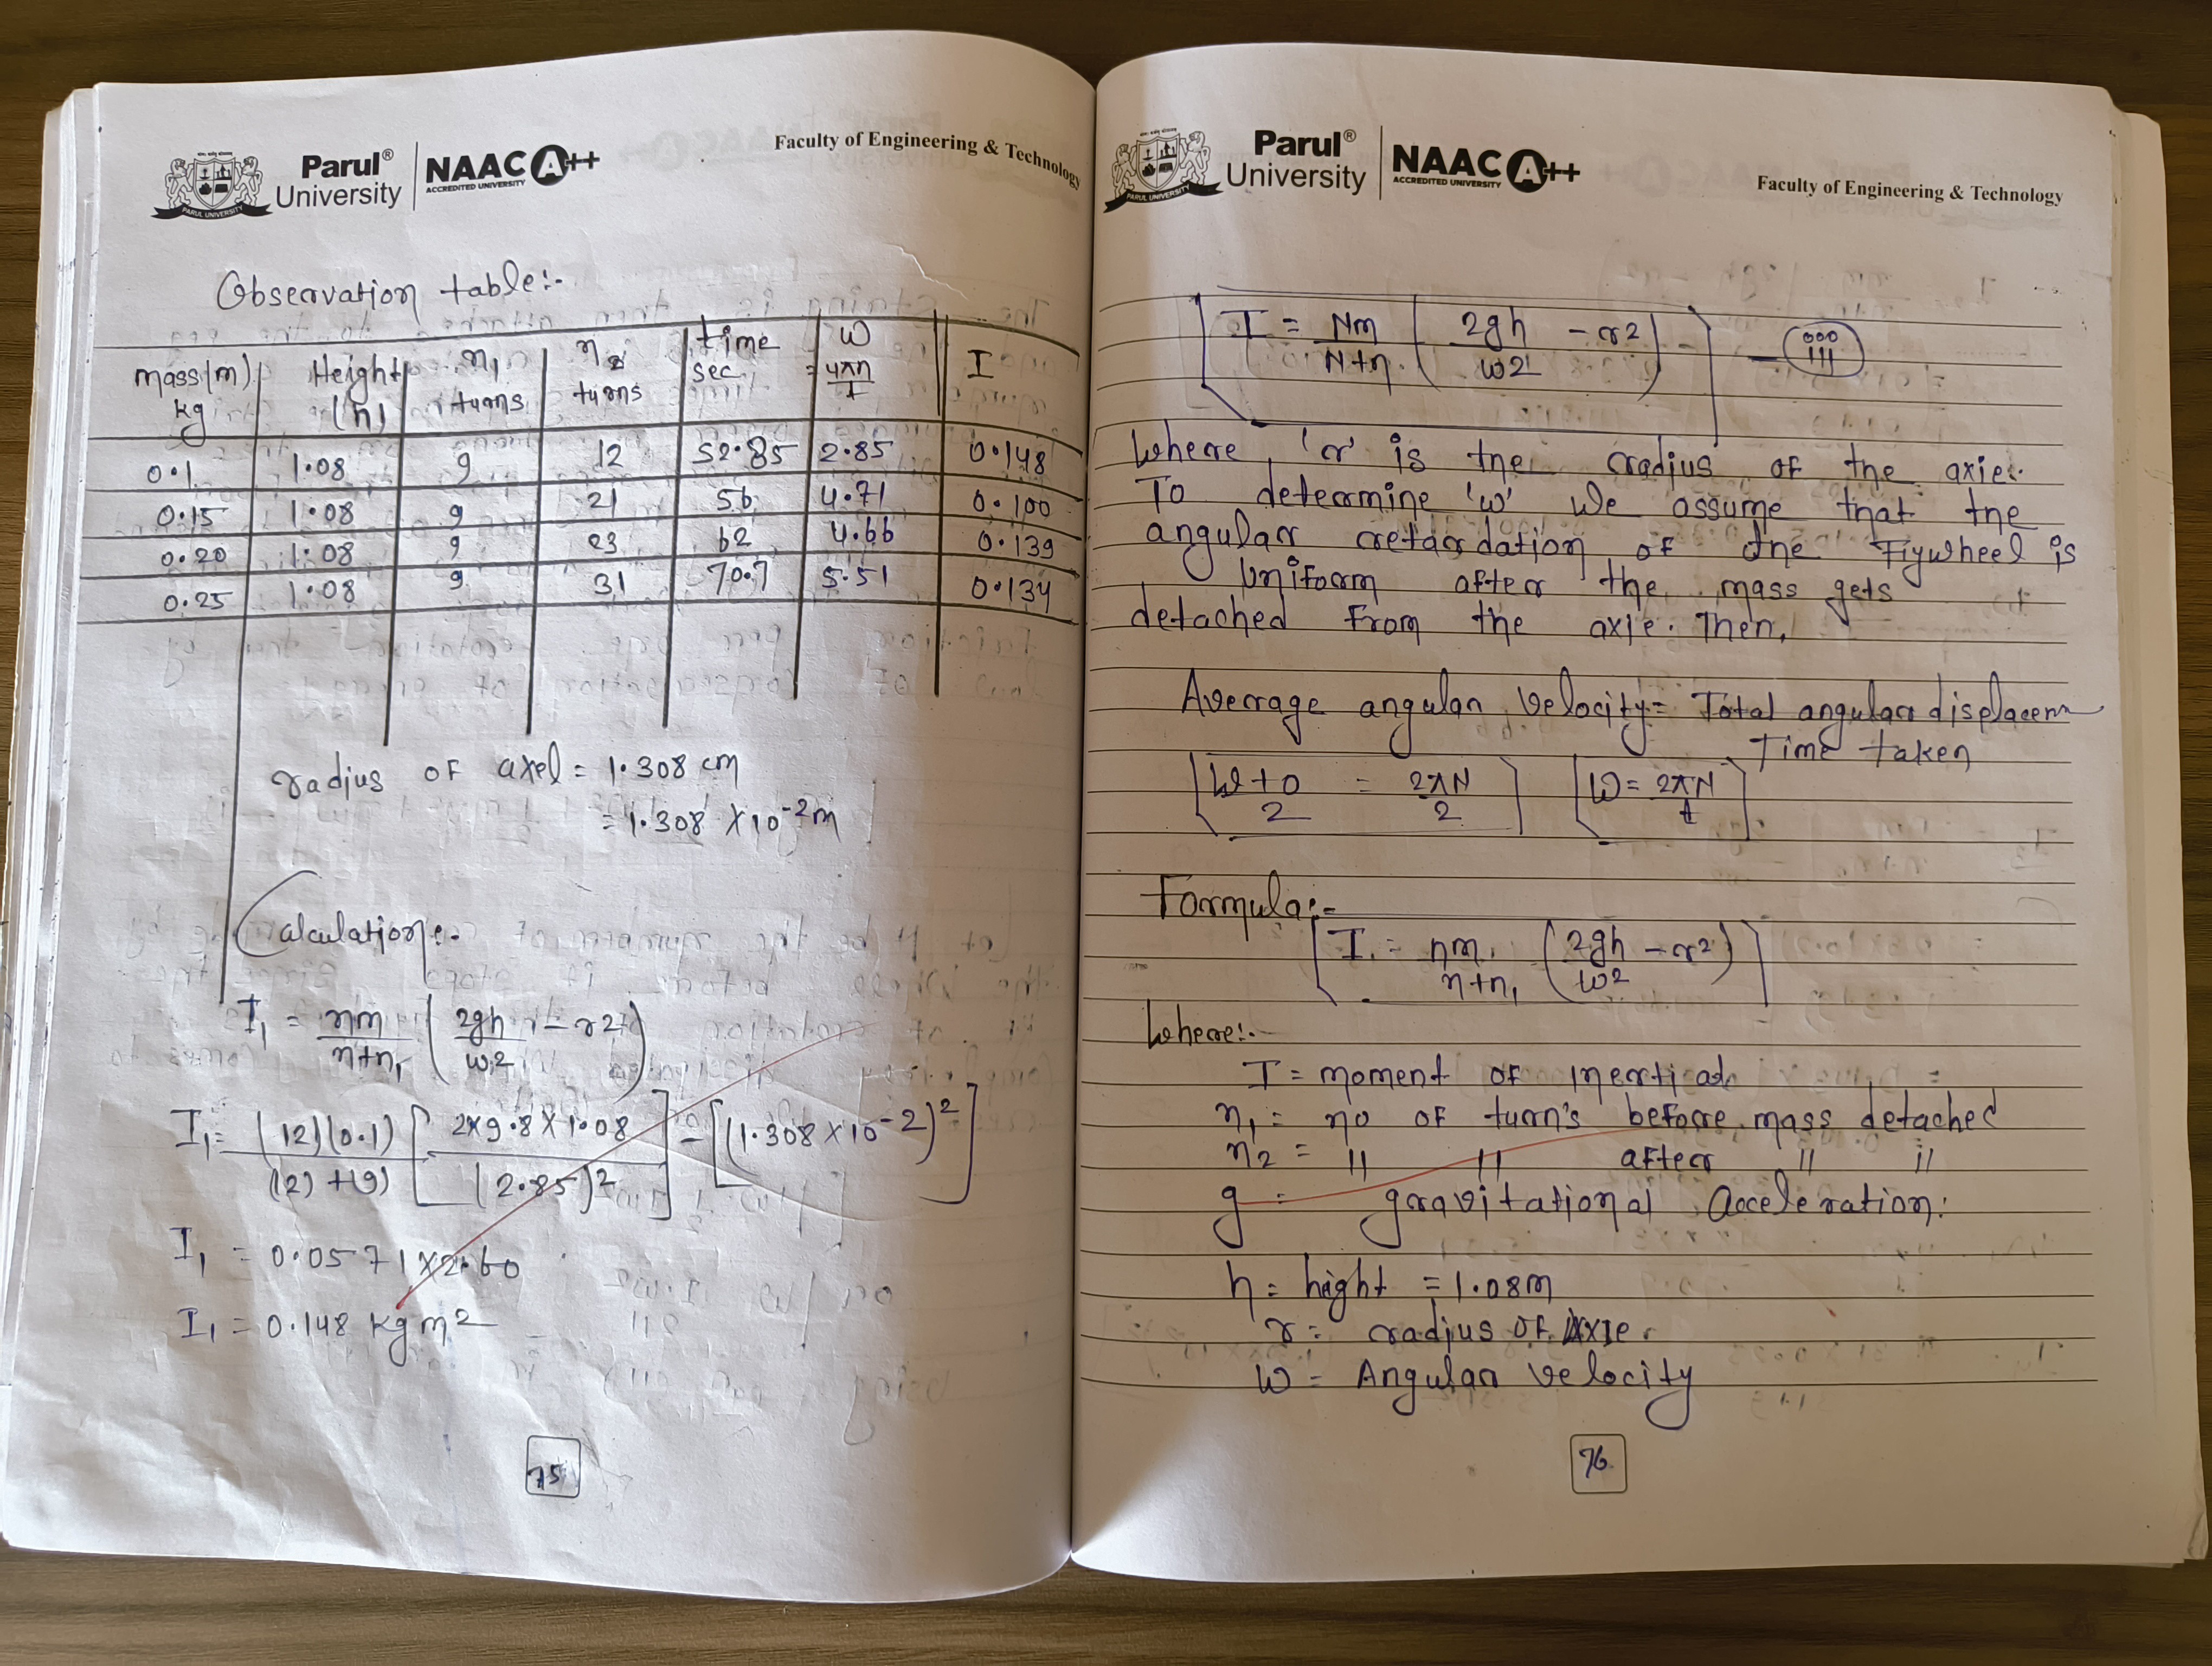 Parul® University
PARUL UNIVERSITY
NAAC A++
ACCREDITED UNIVERSITY
Faculty of Engineering & Technology
Observation table:-
mass(m) kg | Height (h) | n1 turns | n2 turns | time sec | ω = 4πn/t | I
0.1 | 1.08 | 9 | 12 | 52.85 | 2.85 | 0.148
0.15 | 1.08 | 9 | 21 | 56 | 4.71 | 0.100
0.20 | 1.08 | 9 | 23 | 62 | 4.66 | 0.139
0.25 | 1.08 | 9 | 31 | 70.7 | 5.51 | 0.134
radius of axel = 1.308 cm
= 1.308 × 10⁻² m
Calculation:-
I₁ = nm/n+n₁ (2gh/ω2 - r2)
I₁ = (12)(0.1)/(12)+(9) [2×9.8×1.08/(2.85)²] - [(1.308×10⁻²)²]
I₁ = 0.0571×2.60
I₁ = 0.148 kg m2
75
Parul® University
PARUL UNIVERSITY
NAAC A++
ACCREDITED UNIVERSITY
Faculty of Engineering & Technology
[I = Nm/N+n (2gh/ω2 - r2)] -
Where, 'r' is the radius of the axie.
To determine 'w' We assume that the
angular retardation of the Flywheel is
Uniform after the mass gets
detached From the axie. Then,
Average angular Velocity = Total angular displacem
Time taken
[W+0/2 = 2πN/2] [W = 2πN/t]
Formula:-
[I = nm/n+n₁ (2gh/ω2 - r2)]
Where:-
I = moment of inertia
n₁ = no of turn's before mass detached
n2 = 〃 〃 after 〃 〃
g = gravitational Acceleration.
h = hight = 1.08m
r = radius of Axie.
W = Angular Velocity
76